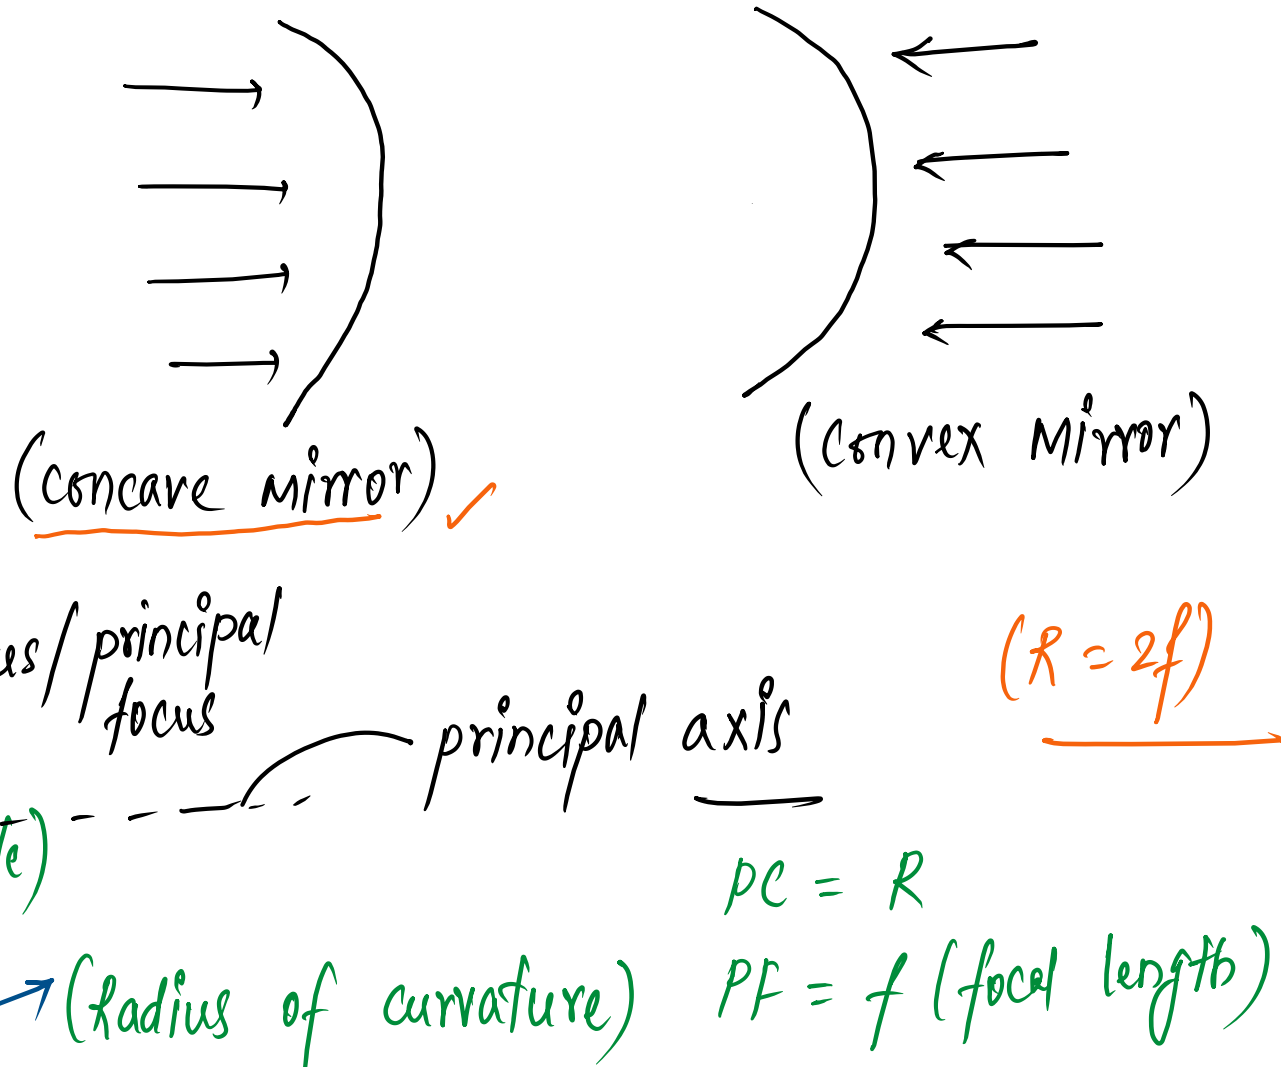 (concave mirror) ✓
(convex mirror)
us/principal
focus
principal axis
(R = 2f)
te)
PC = R
(Radius of curvature)
PF = f (focal length)